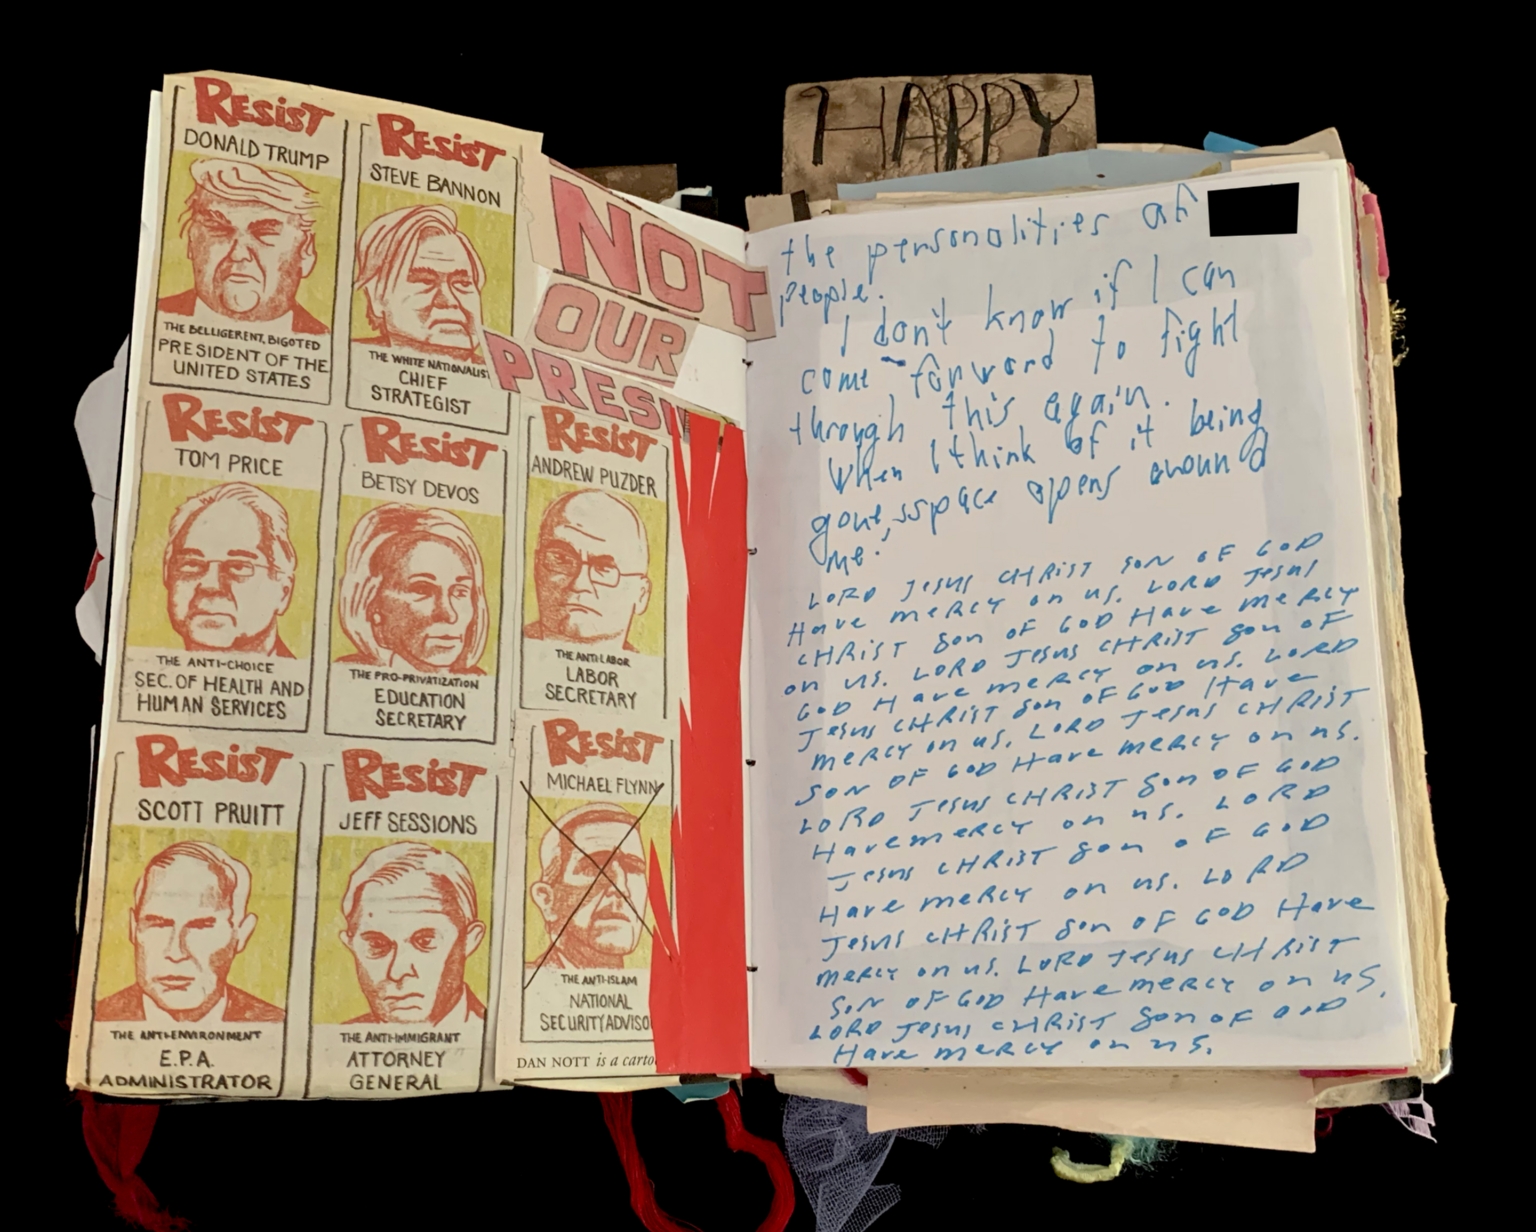 RESIST
DONALD TRUMP
THE BELLIGERENT, BIGOTED
PRESIDENT OF THE
UNITED STATES
RESIST
STEVE BANNON
THE WHITE NATIONALIS
CHIEF
STRATEGIST
NOT
OUR
PRESI
RESIST
TOM PRICE
THE ANTI-CHOICE
SEC. OF HEALTH AND
HUMAN SERVICES
RESIST
BETSY DEVOS
THE PRO-PRIVATIZATION
EDUCATION
SECRETARY
RESIST
ANDREW PUZDER
THE ANTI-LABOR
LABOR
SECRETARY
RESIST
SCOTT PRUITT
THE ANTI-ENVIRONMENT
E.P.A.
ADMINISTRATOR
RESIST
JEFF SESSIONS
THE ANTI-IMMIGRANT
ATTORNEY
GENERAL
RESIST
MICHAEL FLYNN
THE ANTI-ISLAM
NATIONAL
SECURITY ADVISO
DAN NOTT is a carto
HAPPY
the personalities of
people.
I don't know if I can
come forward to fight
through this again.
When I think of it being
gone, space opens around
me.
LORD Jesus CHRIST son OF GOD
Have mercy on us. LORD Jesus
CHRIST son OF GOD Have meRCY
on us. LORD Jesus CHRIST son OF
GOD Have meRCY on us. LORD
Jesus CHRIST son OF GOD Have
meRCY on us. LORD Jesus CHRIST
SON OF GOD Have meRCY on us.
LORD Jesus CHRIST son OF GOD
Have meRCY on us. LORD
Jesus CHRIST son OF GOD
Have meRCY on us. LORD
Jesus CHRIST son OF GOD Have
meRCY on us. LORD Jesus CHRIST
SON OF GOD Have meRCY on us.
LORD Jesus CHRIST son OF GOD
Have meRCY on us.